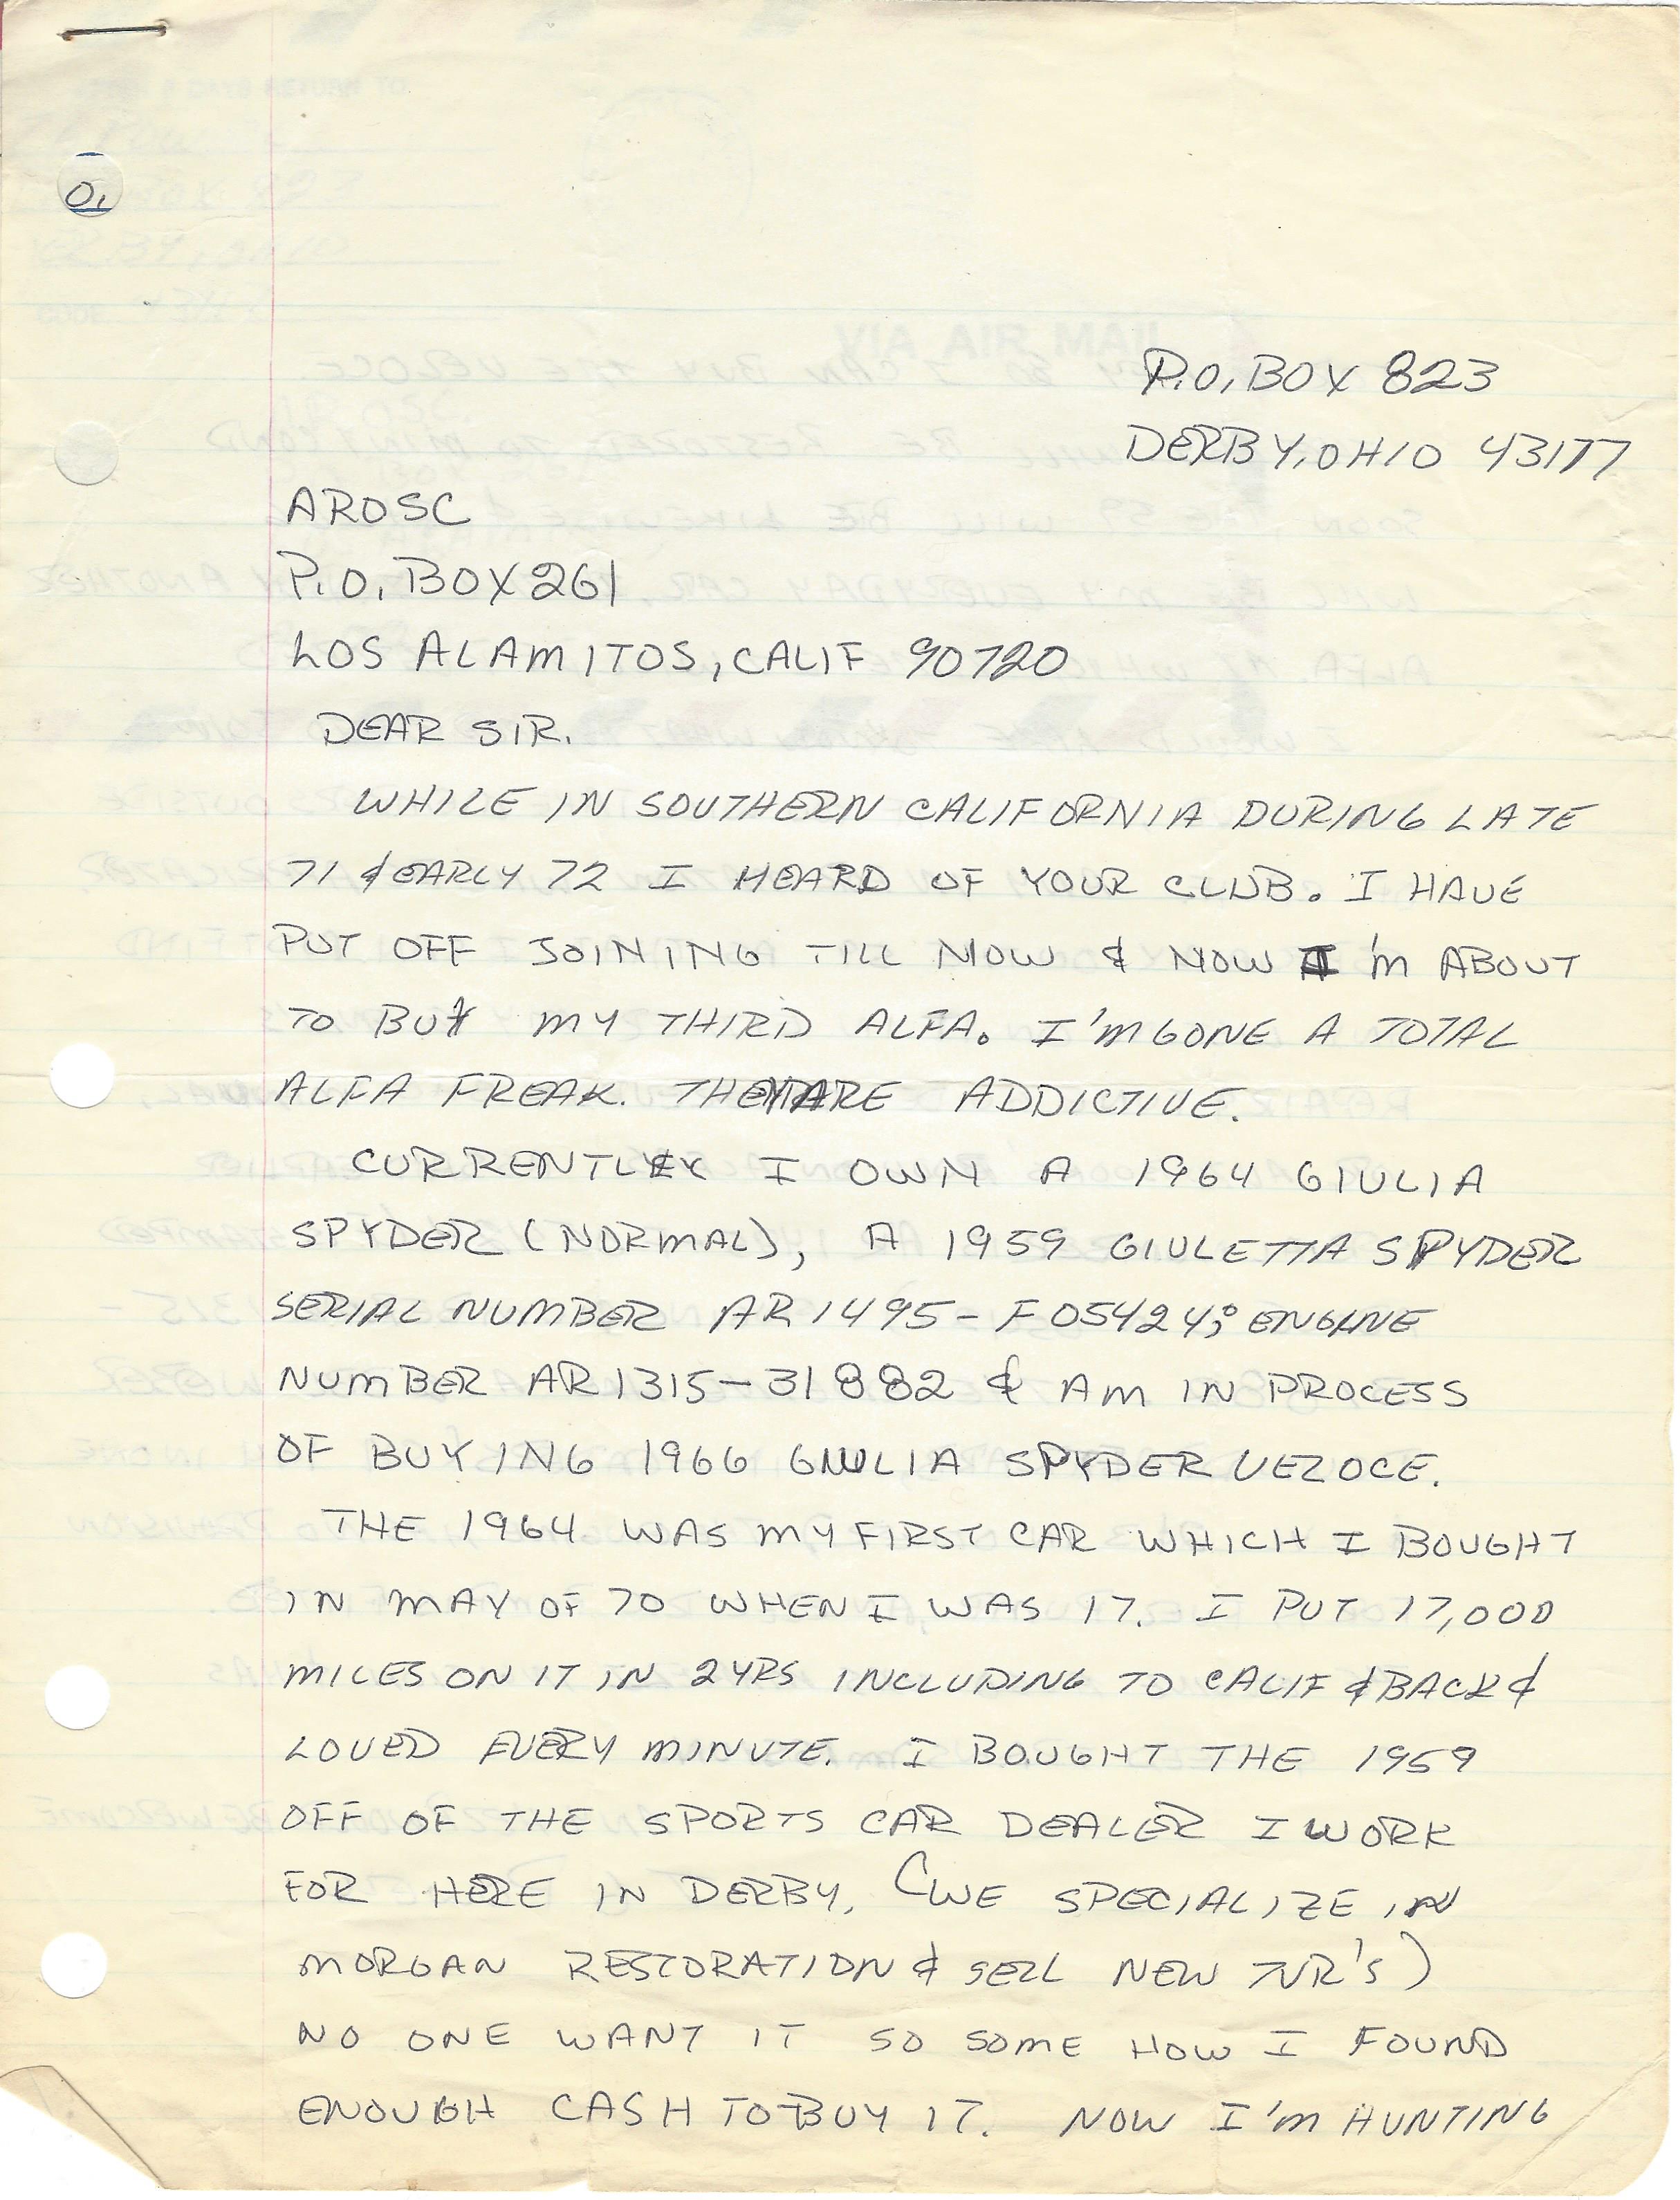 O,
P.O. BOX 823
DERBY, OHIO 43177
AROSC
P.O. BOX 261
LOS ALAMITOS, CALIF 90720
DEAR SIR.
WHILE IN SOUTHERN CALIFORNIA DURING LATE
71 & EARLY 72 I HEARD OF YOUR CLUB. I HAVE
PUT OFF JOINING TILL NOW & NOW I'M ABOUT
TO BUY MY THIRD ALFA. I'M GONE A TOTAL
ALFA FREAK. THEY ARE ADDICTIVE.
CURRENTLY I OWN A 1964 GIULIA
SPYDER (NORMAL), A 1959 GIULETTA SPYDER
SERIAL NUMBER AR 1495-F05424; ENGINE
NUMBER AR 1315-31882 & AM IN PROCESS
OF BUYING 1966 GIULIA SPYDER VELOCE.
THE 1964 WAS MY FIRST CAR WHICH I BOUGHT
IN MAY OF 70 WHEN I WAS 17. I PUT 17,000
MILES ON IT IN 2 YRS INCLUDING TO CALIF & BACK &
LOVED EVERY MINUTE. I BOUGHT THE 1959
OFF OF THE SPORTS CAR DEALER I WORK
FOR HERE IN DERBY. (WE SPECIALIZE IN
MORGAN RESTORATION & SELL NEW TVR'S)
NO ONE WANT IT SO SOME HOW I FOUND
ENOUGH CASH TO BUY IT. NOW I'M HUNTING